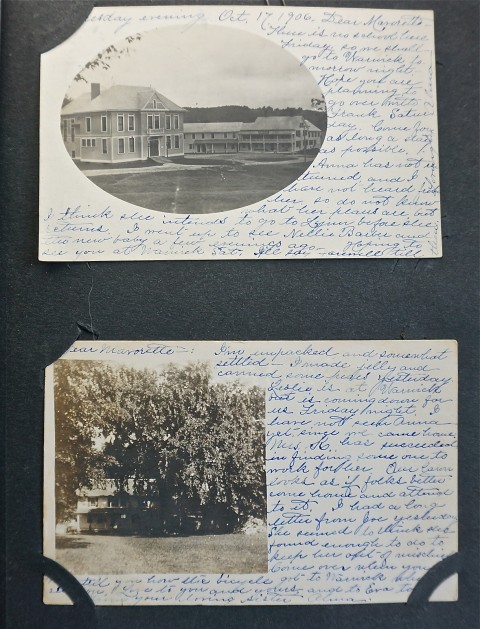 esday evening Oct. 17 1906. Dear Marorette
There is no school here
Friday, so we shall
go to Warwick to
morrow night.
Hope you are
planning to
go over with
Frank Satur
day. Come for
as long a stay
as possible.
Anna has not re
turned and I
have not heard from
her, so do not know
what her plans are but
I think she intends to go to before she
returns. I went up to see Nellie and
the new baby a few evenings ago. Hoping to
see you at Warwick Sat. I'll say farewell till
ear Marorette:- I'm unpacked and somewhat
settled. I made jelly and
canned some yesterday
Leslie is at Warwick
but is coming down for
us Friday night. I
have not seen Anna
yet since we came home.
Mrs. K. has succeeded
in finding some one to
work for her. Our lawn
looks as if folks better
come home and attend
to it. I had a long
letter from Joe yesterday
She seemed to think she
found enough to do to
keep her out of mischief
Come over when you
tell you how the bicycle got to Warwick
to you and yours, and to Eva to
your loving sister